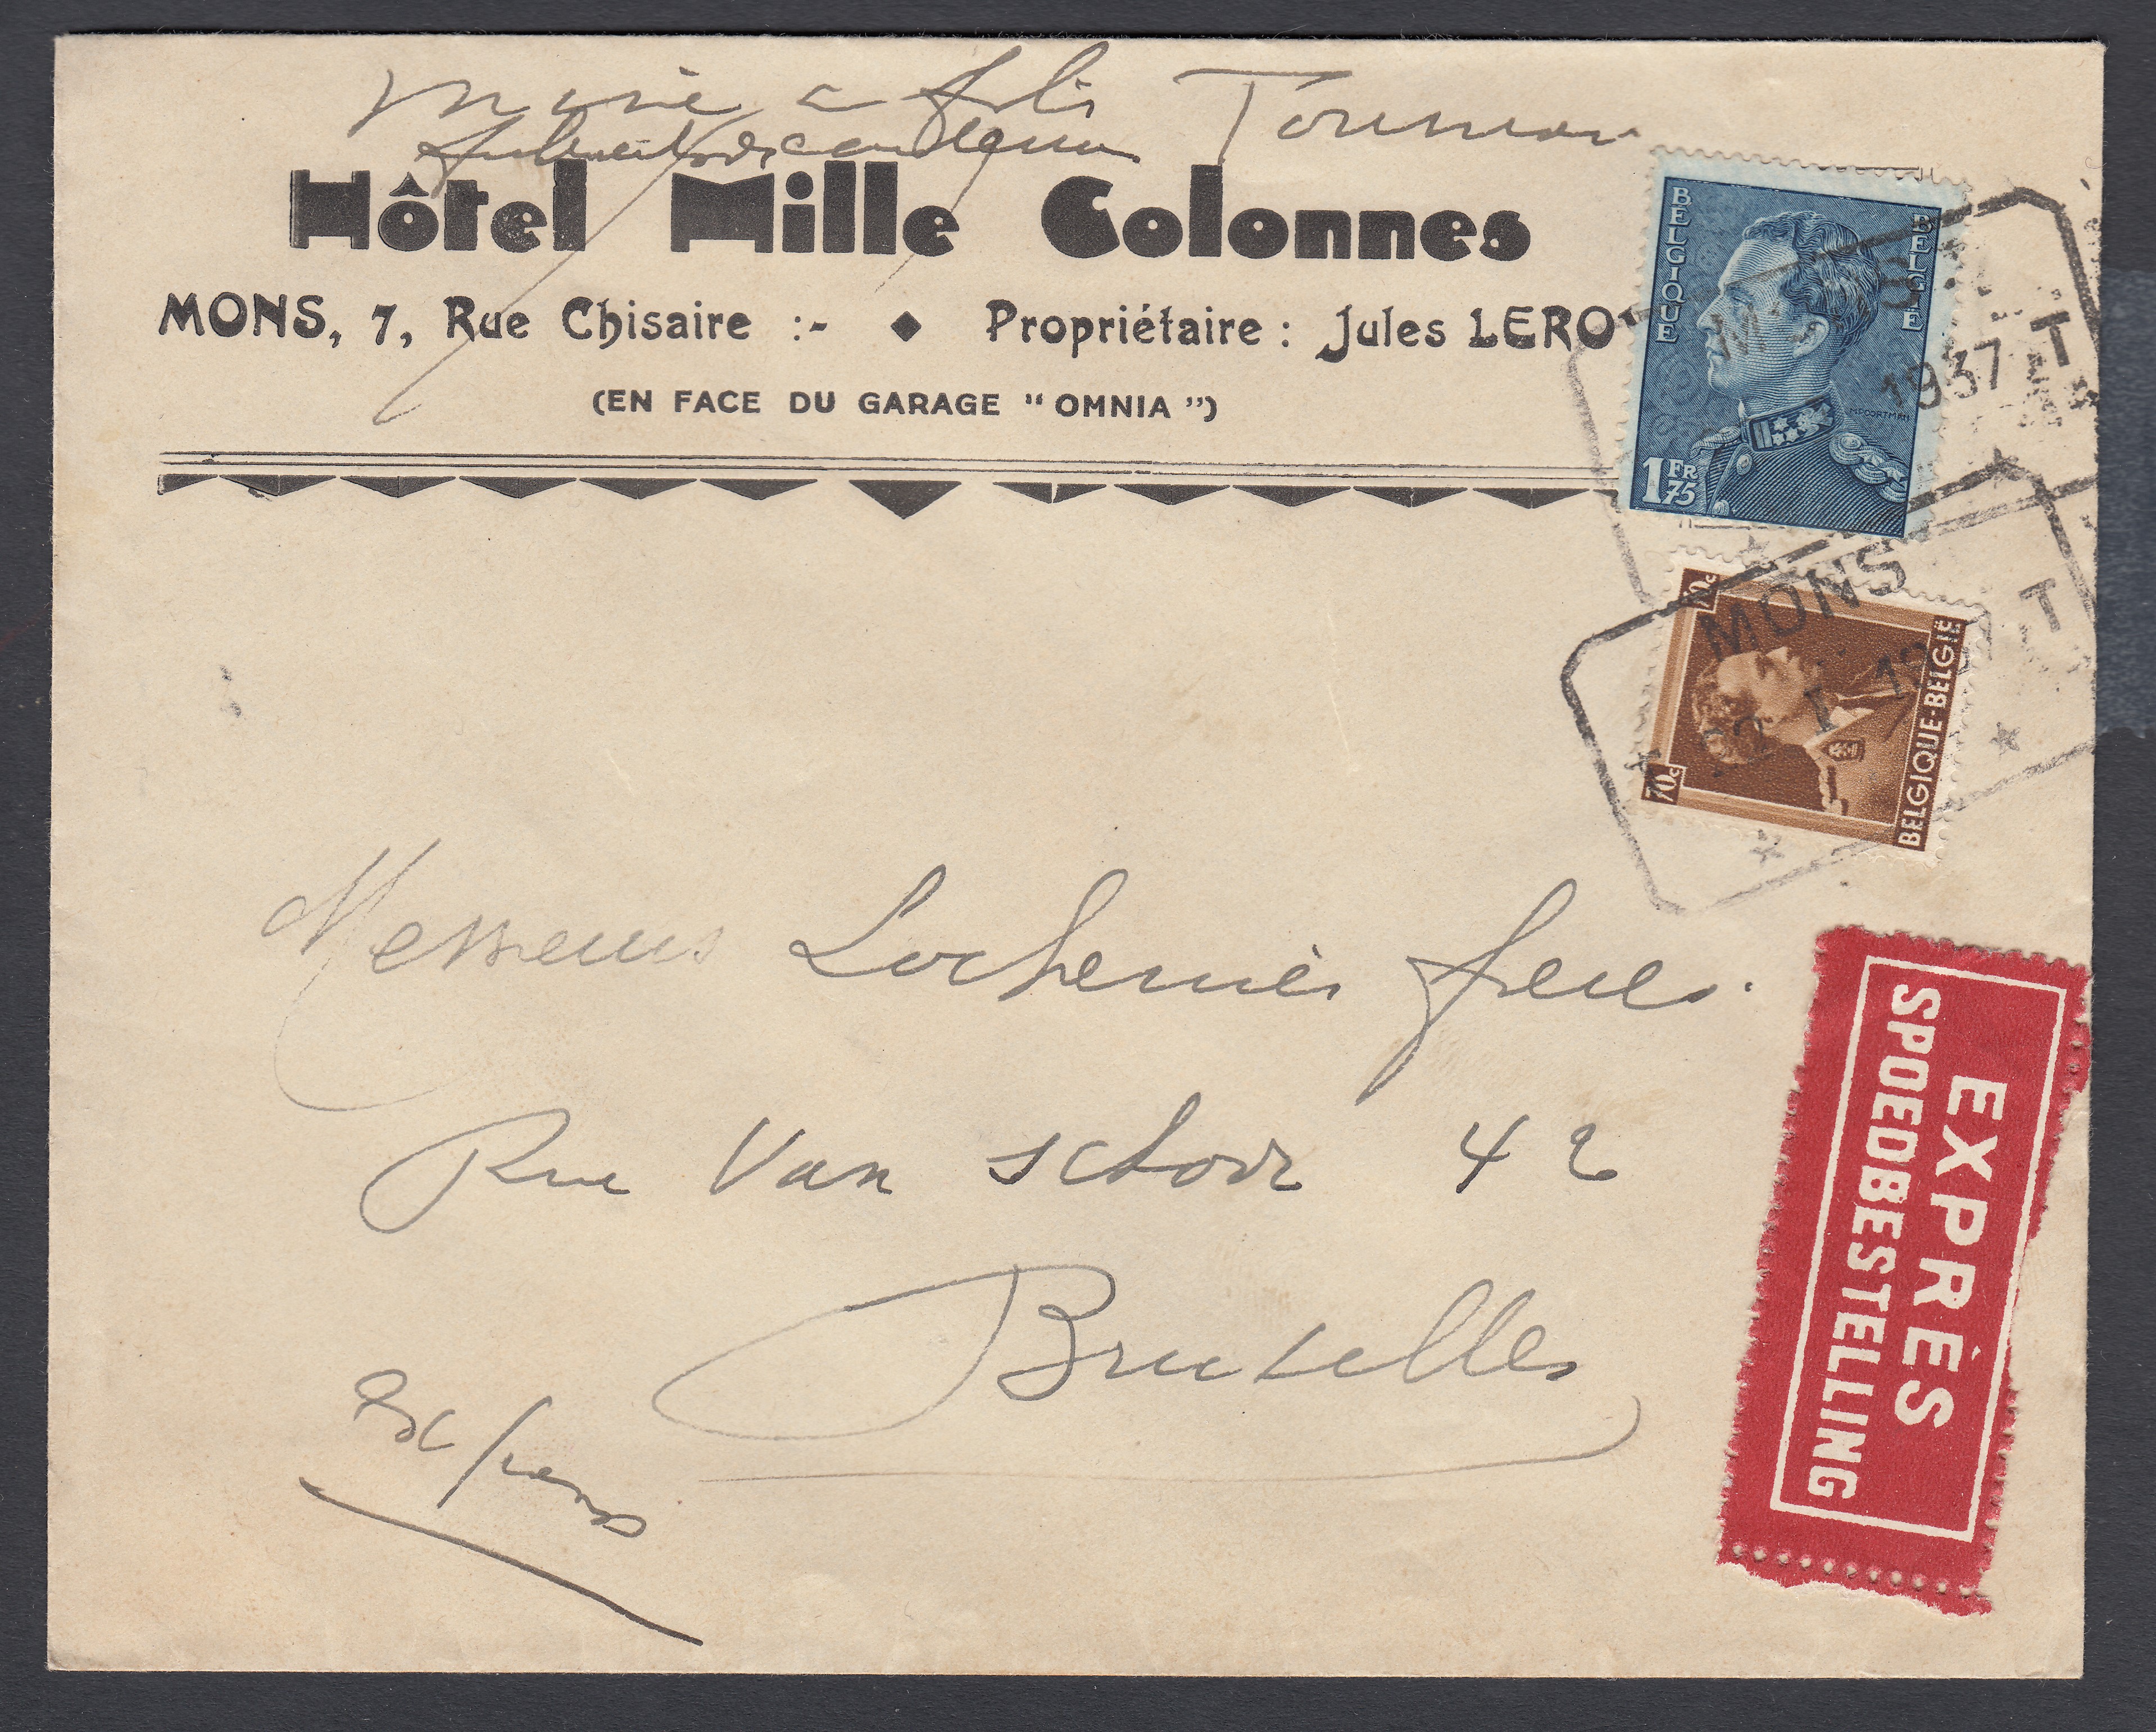 Tournai
Hôtel Mille Colonnes
MONS, 7, Rue Chisaire :- ◆ Propriétaire : Jules LERO
(EN FACE DU GARAGE "OMNIA")
BELGIQUE
BELGIE
MPOORTMAN
1FR75
MONS
1937
T
70c
70c
BELGIQUE-BELGIË
MONS
T
22 I 19
Messieurs Lochenies freres.
Rue Van schoor 42
Bruxelles
Express
EXPRÈS
SPOEDBESTELLING